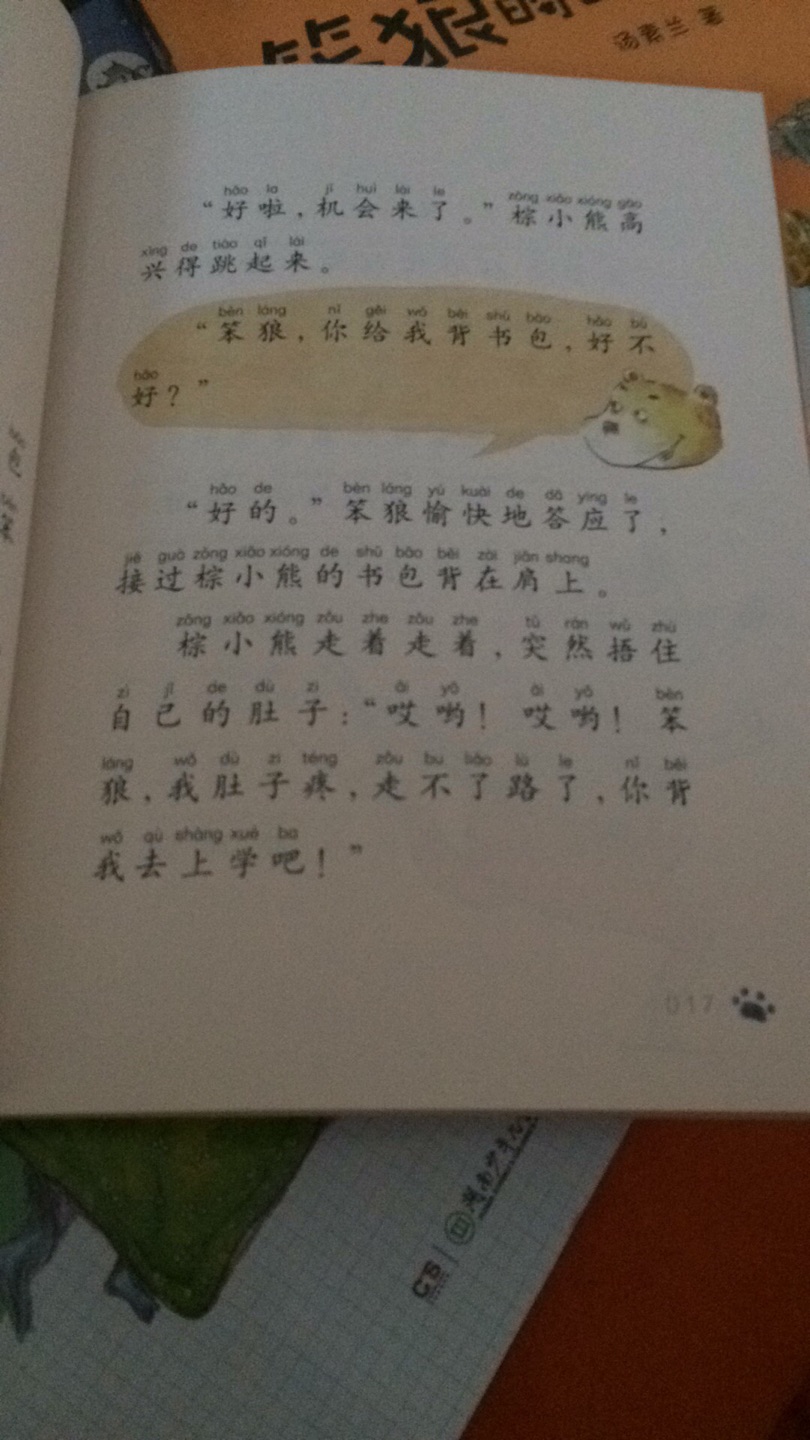 笨狼的
汤素兰 著
hǎo la jī huì lái le zōng xiǎo xióng gāo
“好啦，机会来了。”棕小熊高
xìng de tiào qǐ lái
兴得跳起来。
bèn láng nǐ gěi wǒ bēi shū bāo hǎo bù
“笨狼，你给我背书包，好不
hǎo
好？”
hǎo de bèn láng yú kuài de dā ying le
“好的。”笨狼愉快地答应了，
jiē guò zōng xiǎo xióng de shū bāo bēi zài jiān shang
接过棕小熊的书包背在肩上。
zōng xiǎo xióng zǒu zhe zǒu zhe tū rán wǔ zhù
棕小熊走着走着，突然捂住
zì jǐ de dù zi āi yō āi yō bèn
自己的肚子：“哎哟！哎哟！笨
láng wǒ dù zi téng zǒu bu liǎo lù le nǐ bēi
狼，我肚子疼，走不了路了，你背
wǒ qù shàng xué ba
我去上学吧！”
017
包
笨